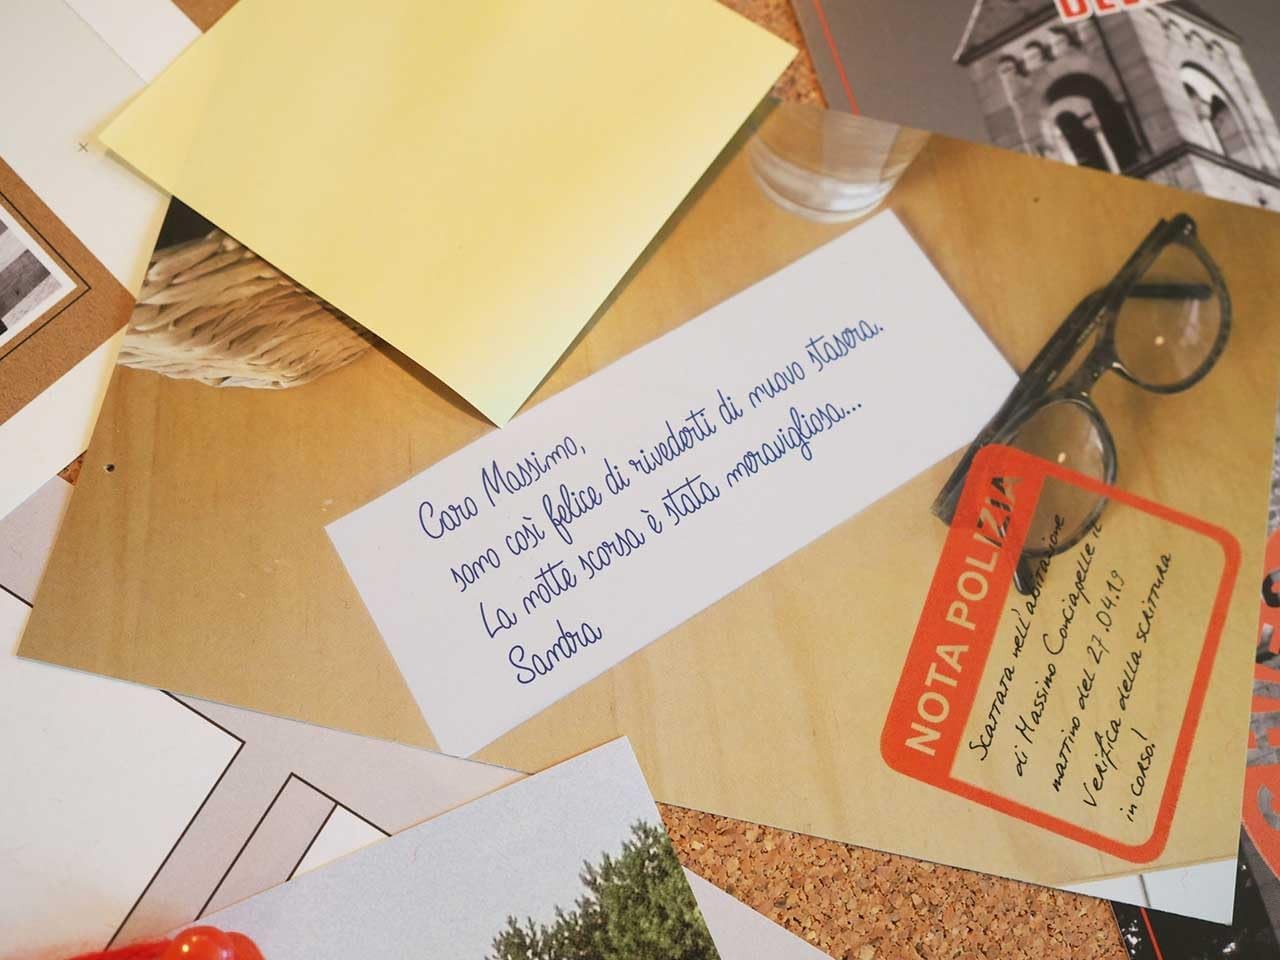 Caro Massimo,
sono così felice di rivederti di nuovo stasera.
La notte scorsa è stata meravigliosa...
Sandra
NOTA POLIZIA
Scattata nell'abitazione
di Massimo Conciapelle il
mattino del 27.04.19
Verifica della scrittura
in corso!